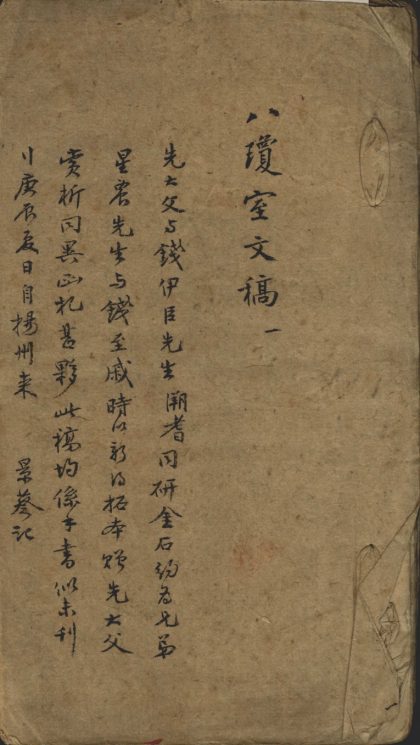 八瓊室文稿 一
先大父与錢伊臣先生渊耆同研金石約為兄弟
星農先生与錢至戚時以新得拓本贈先大父
賞析同異函札甚夥此稿均係手書似未刊
庚辰夏日自揚州来 景葵記